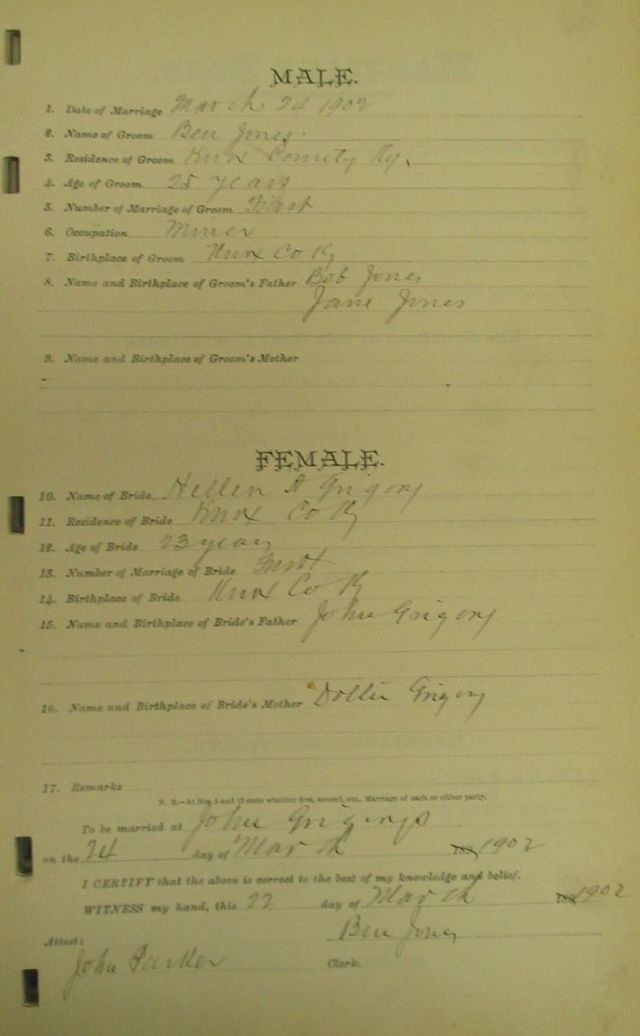 MALE.
1. Date of Marriage March 24 1902
2. Name of Groom Ben Jones.
3. Residence of Groom Knox County Ky.
4. Age of Groom 25 years
5. Number of Marriage of Groom First
6. Occupation Miner
7. Birthplace of Groom Knox Co Ky
8. Name and Birthplace of Groom's Father Bob Jones
Jane Jones
9. Name and Birthplace of Groom's Mother
FEMALE.
10. Name of Bride Hellen A Grigory
11. Residence of Bride Knox Co Ky
12. Age of Bride 23 years
13. Number of Marriage of Bride First
14. Birthplace of Bride Knox Co Ky
15. Name and Birthplace of Bride's Father John Grigory
16. Name and Birthplace of Bride's Mother Dollie Grigory
17. Remarks
N. B.—At Nos 5 and 13 state whether first, second, etc., Marriage of each or either party.
To be married at John Grigorys
on the 24 day of March 1902
I CERTIFY that the above is correct to the best of my knowledge and belief.
WITNESS my hand, this 22 day of March 1902
Ben Jones
Attest:
John Parker Clerk.